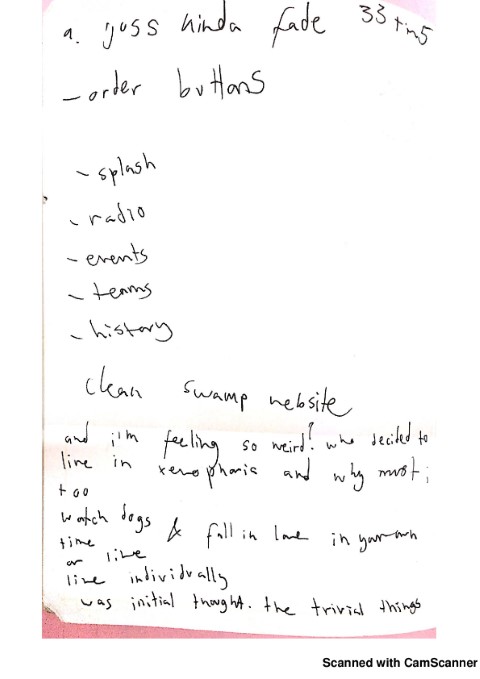 a. yuss kinda fade 33 
- order buttons
- splash
- radio
- events
- teams
- history
clean swamp website
and i'm feeling so weird! who decided to
live in and why must i
too
watch dogs & fall in love in your own
time
or live
live individually
was initial thought. the trivial things
Scanned with CamScanner